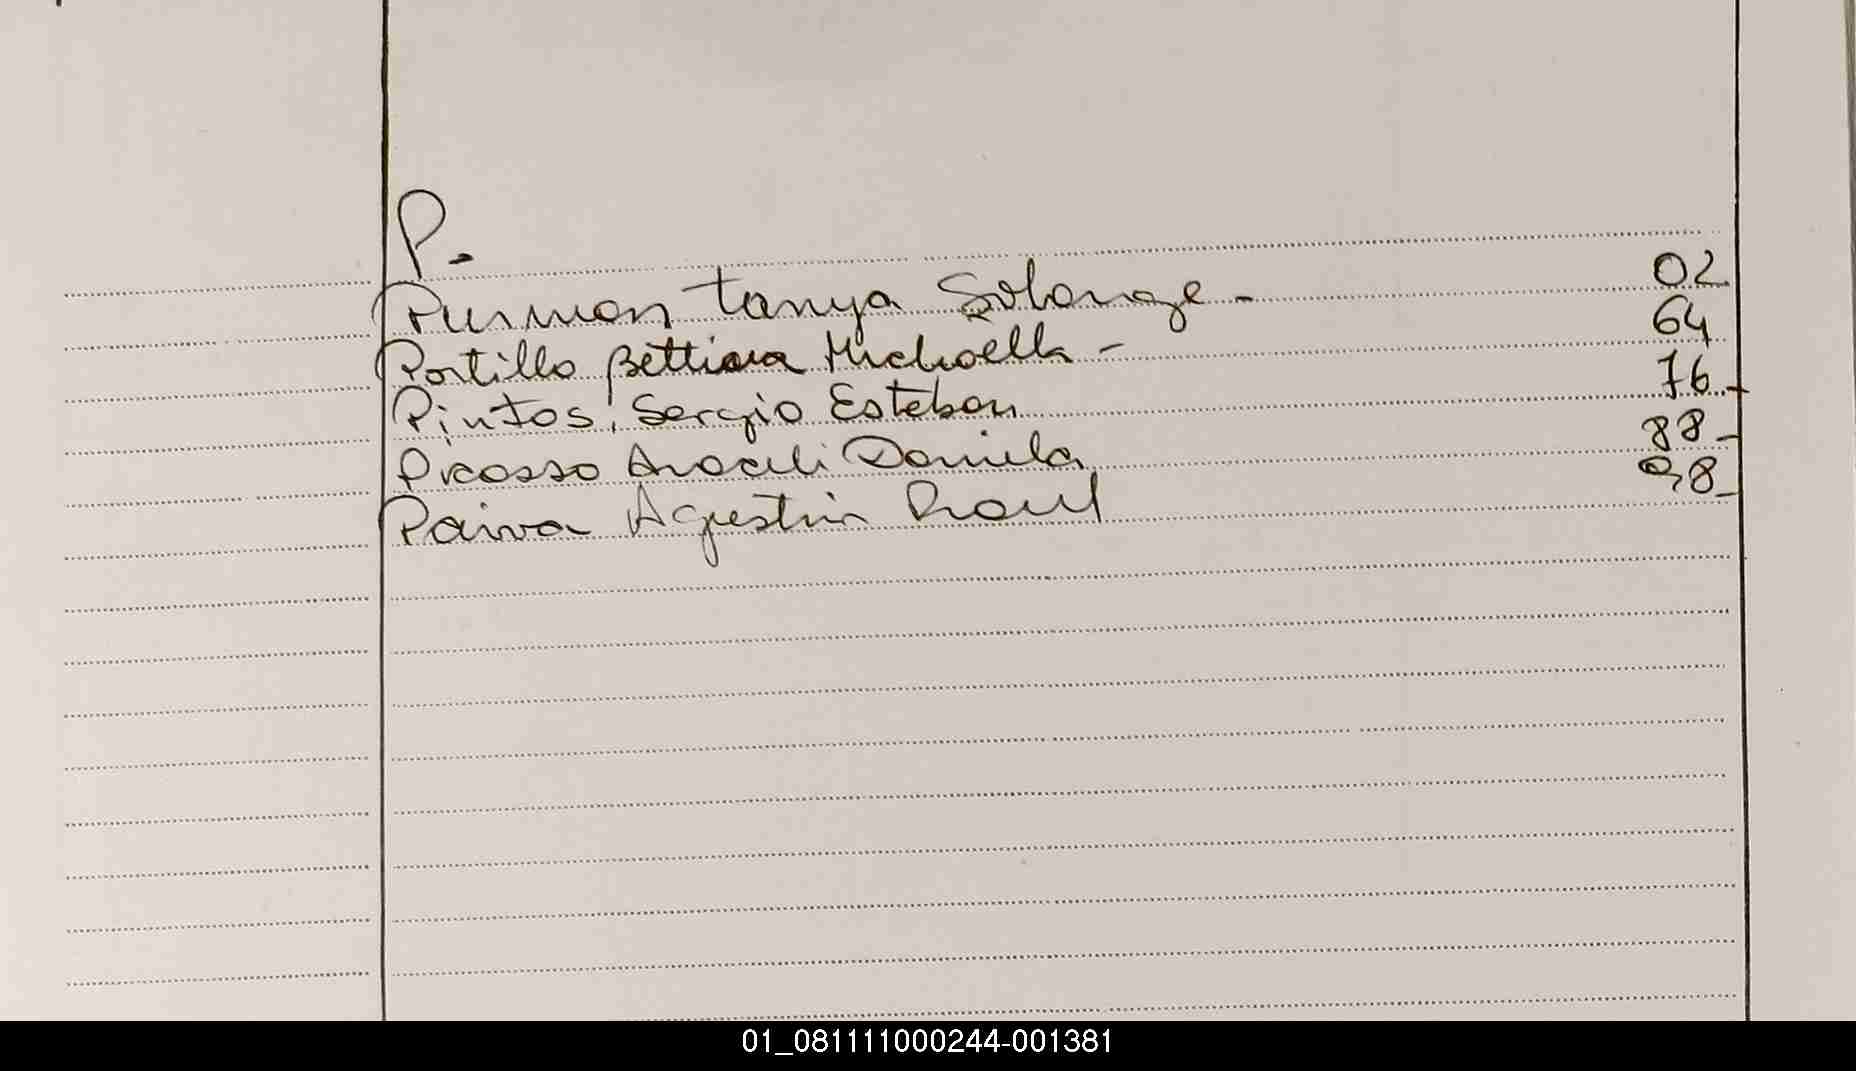 P.
Purman Tanya Solange - 02
Portillo Bettiana Michaella - 64
Pintos, Sergio Esteban 76 -
Picasso Araceli Daniela 88 -
Paiva Agustin Raul 98 -
01_081111000244-001381